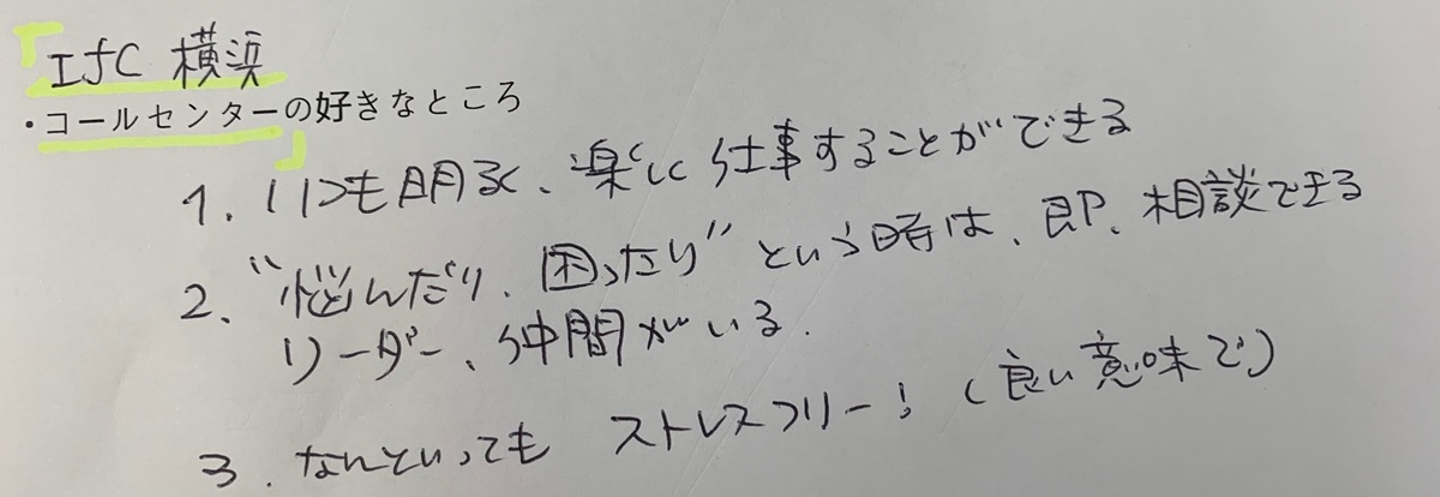 「IfC 横浜
・コールセンターの好きなところ
」
1. いつも明るく、楽しく仕事することができる
2、“悩んだり、困ったり”という時は、即、相談できる
リーダー、仲間がいる.
3. なんといっても ストレスフリー!(良い意味で)